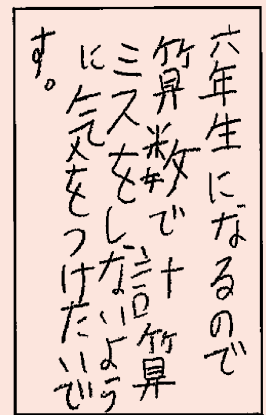 六年生になるので
算数で計算
ミスをしないよう
に気をつけたいで
す。